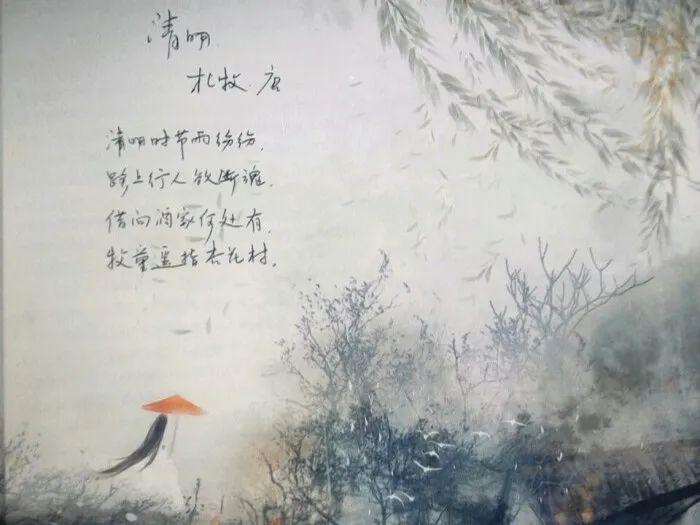 清明
杜牧.唐
清明时节雨纷纷,
路上行人欲断魂.
借问酒家何处有,
牧童遥指杏花村.